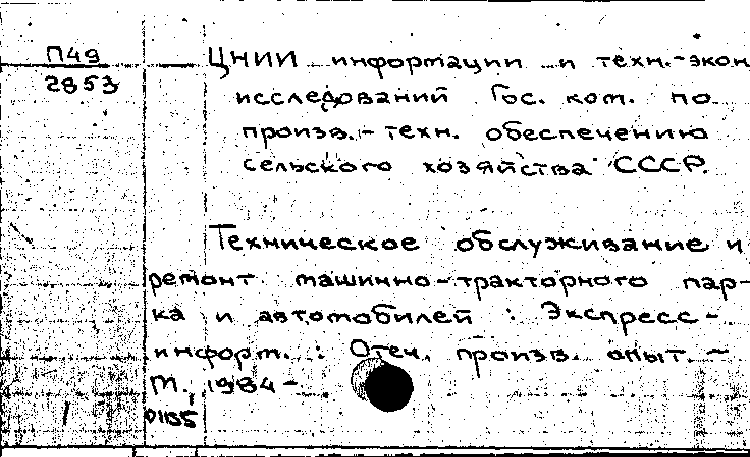 П49
2853
ЦНИИ информации и техн.-экон
исследований Гос. ком. по
произв.-техн. обеспечению
сельского хозяйства СССР.
Техническое обслуживание и
ремонт машинно-тракторного пар-
ка и автомобилей : Экспресс-
информ. : Отеч. произв. опыт. —
М., 1984 —